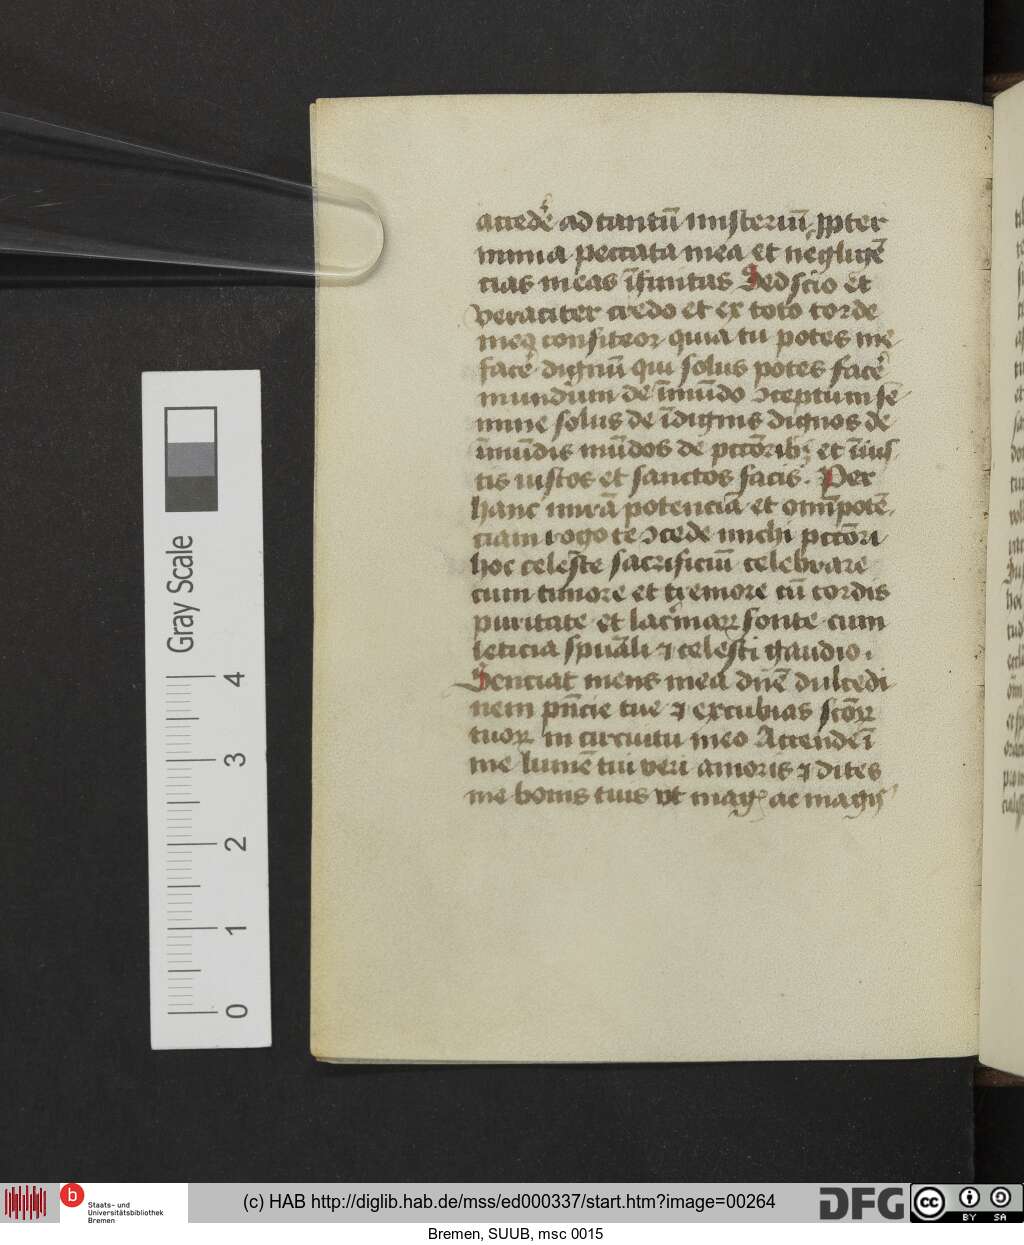 accedē ad tantū misteriū ꝓpter
nimia peccata mea et negligē
cias meas īfinitas Sed scio et
veraciter credo et ex toto corde
meo confiteor quia tu potes me
facē dignū qui solus potes facē
mundum de īmūdo ɔceptum se
mine solus de īdignis dignos de
īmūdis mūdos de pctōribꝫ et īius
tis iustos et sanctos facis. Per
hanc mirā potenciā et omīpotē
ciam rogo te ɔcede michi pctōri
hoc celeste sacrificiū celebrare
cum timore et tremore cū cordis
puritate et lacͥmaꝝ fonte cum
leticia spūali ⁊ celesti gaudio.
Senciat mens mea dn̄e dulcedi
nem pn̄cie tue ⁊ excubias scōꝝ
tuoꝝ in circuitu meo Accende ī
me lumē tui veri amoris ⁊ dites
me bonis tuis vt magꝭ ac magꝭ
Gray Scale
0 1 2 3 4
b Staats- und
Universitätsbibliothek
Bremen
(c) HAB http://diglib.hab.de/mss/ed000337/start.htm?image=00264
DFG
cc BY SA
Bremen, SUUB, msc 0015